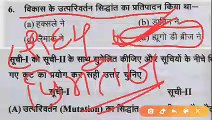 6. विकास के उत्परिवर्तन सिद्धांत का प्रतिपादन किया था-
(a) हक्सले ने (b) डार्विन ने
लैमार्क ने (d) ह्यूगो डी ब्रीज ने
सूची-I को सूची-II के साथ सुमेलित कीजिए और सूचियों के नीचे
गए कूट का प्रयोग कर सही उत्तर चुनिए
सूची-I सूची-II
(A) उत्परिवर्तन (Mutation) का सिद्धांत